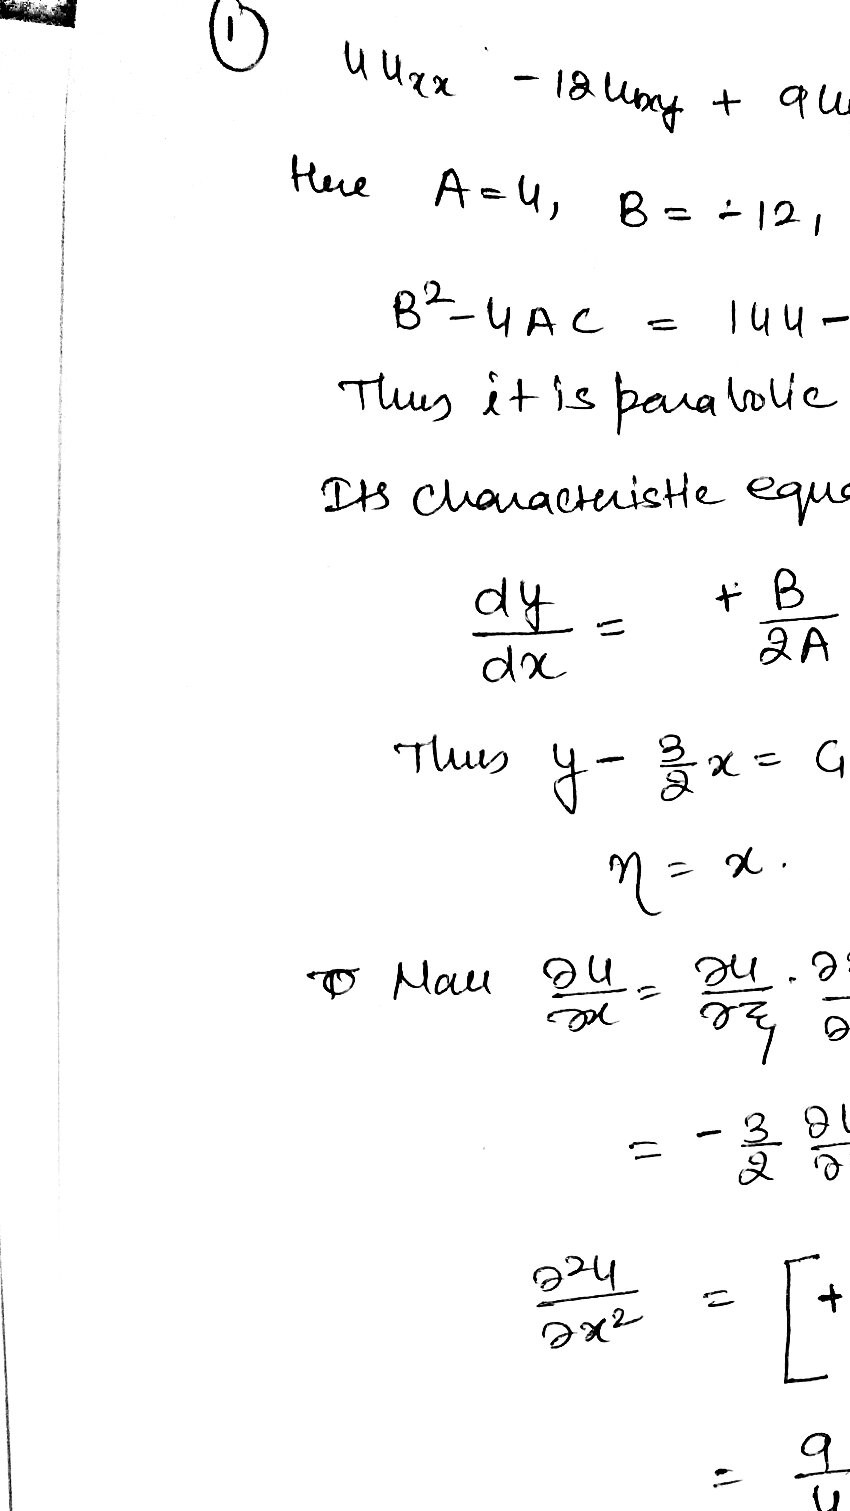 ①
4uxx - 12uxy + 9u
Here A = 4, B = -12,
B² - 4AC = 144 -
Thus it is parabolic
Its characteristic equa
dy/dx = + B/2A
Thus y - 3/2 x = C1
η = x.
∂u/∂x = ∂u/∂ξ · ∂
= - 3/2 ∂u/∂
∂²u/∂x² = [ +
= 9/4